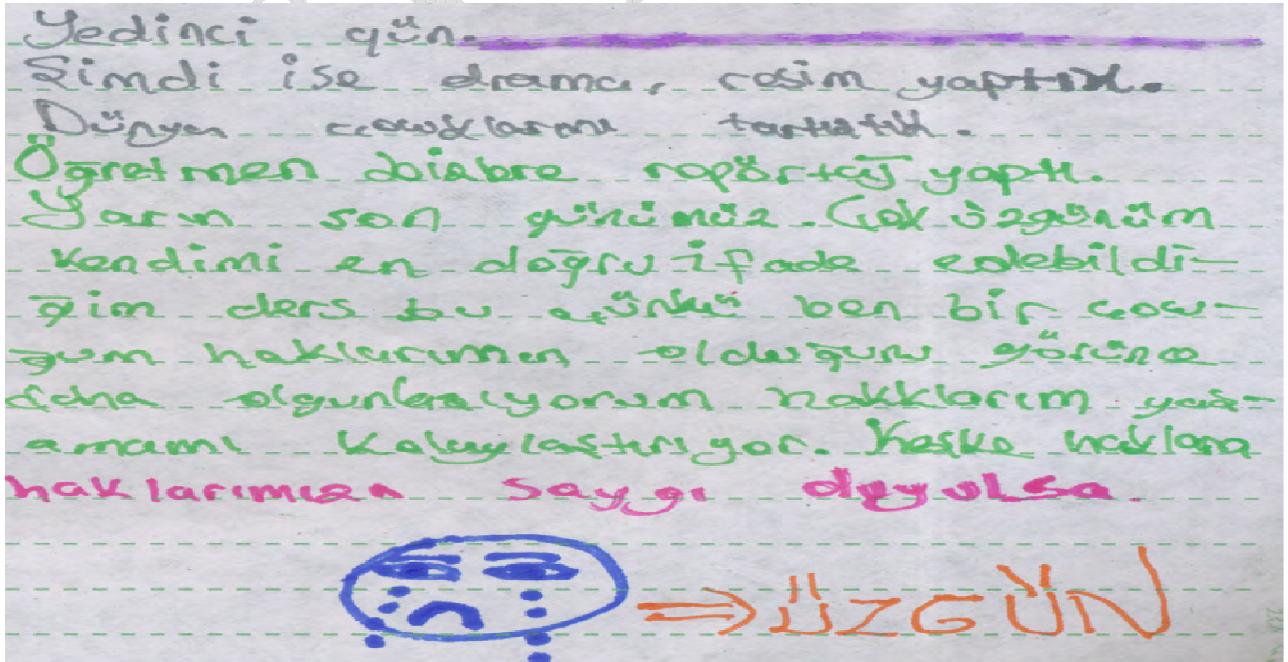 Yedinci gün.
Şimdi ise drama, resim yaptık.
Dünya çocuklarını tartıştık.
Öğretmen bizlere röpörtaj yaptı.
Yarın son günümüz. Çok üzgünüm
kendimi en doğru ifade edebildi-
ğim ders bu çünkü ben bir çocu-
ğum haklarımın olduğunu görünce
daha olgunlaşıyorum hakklarım yaş-
amamı kolaylaştırıyor. Keşke haklara
haklarımıza saygı duyulsa.
ÜZGÜN